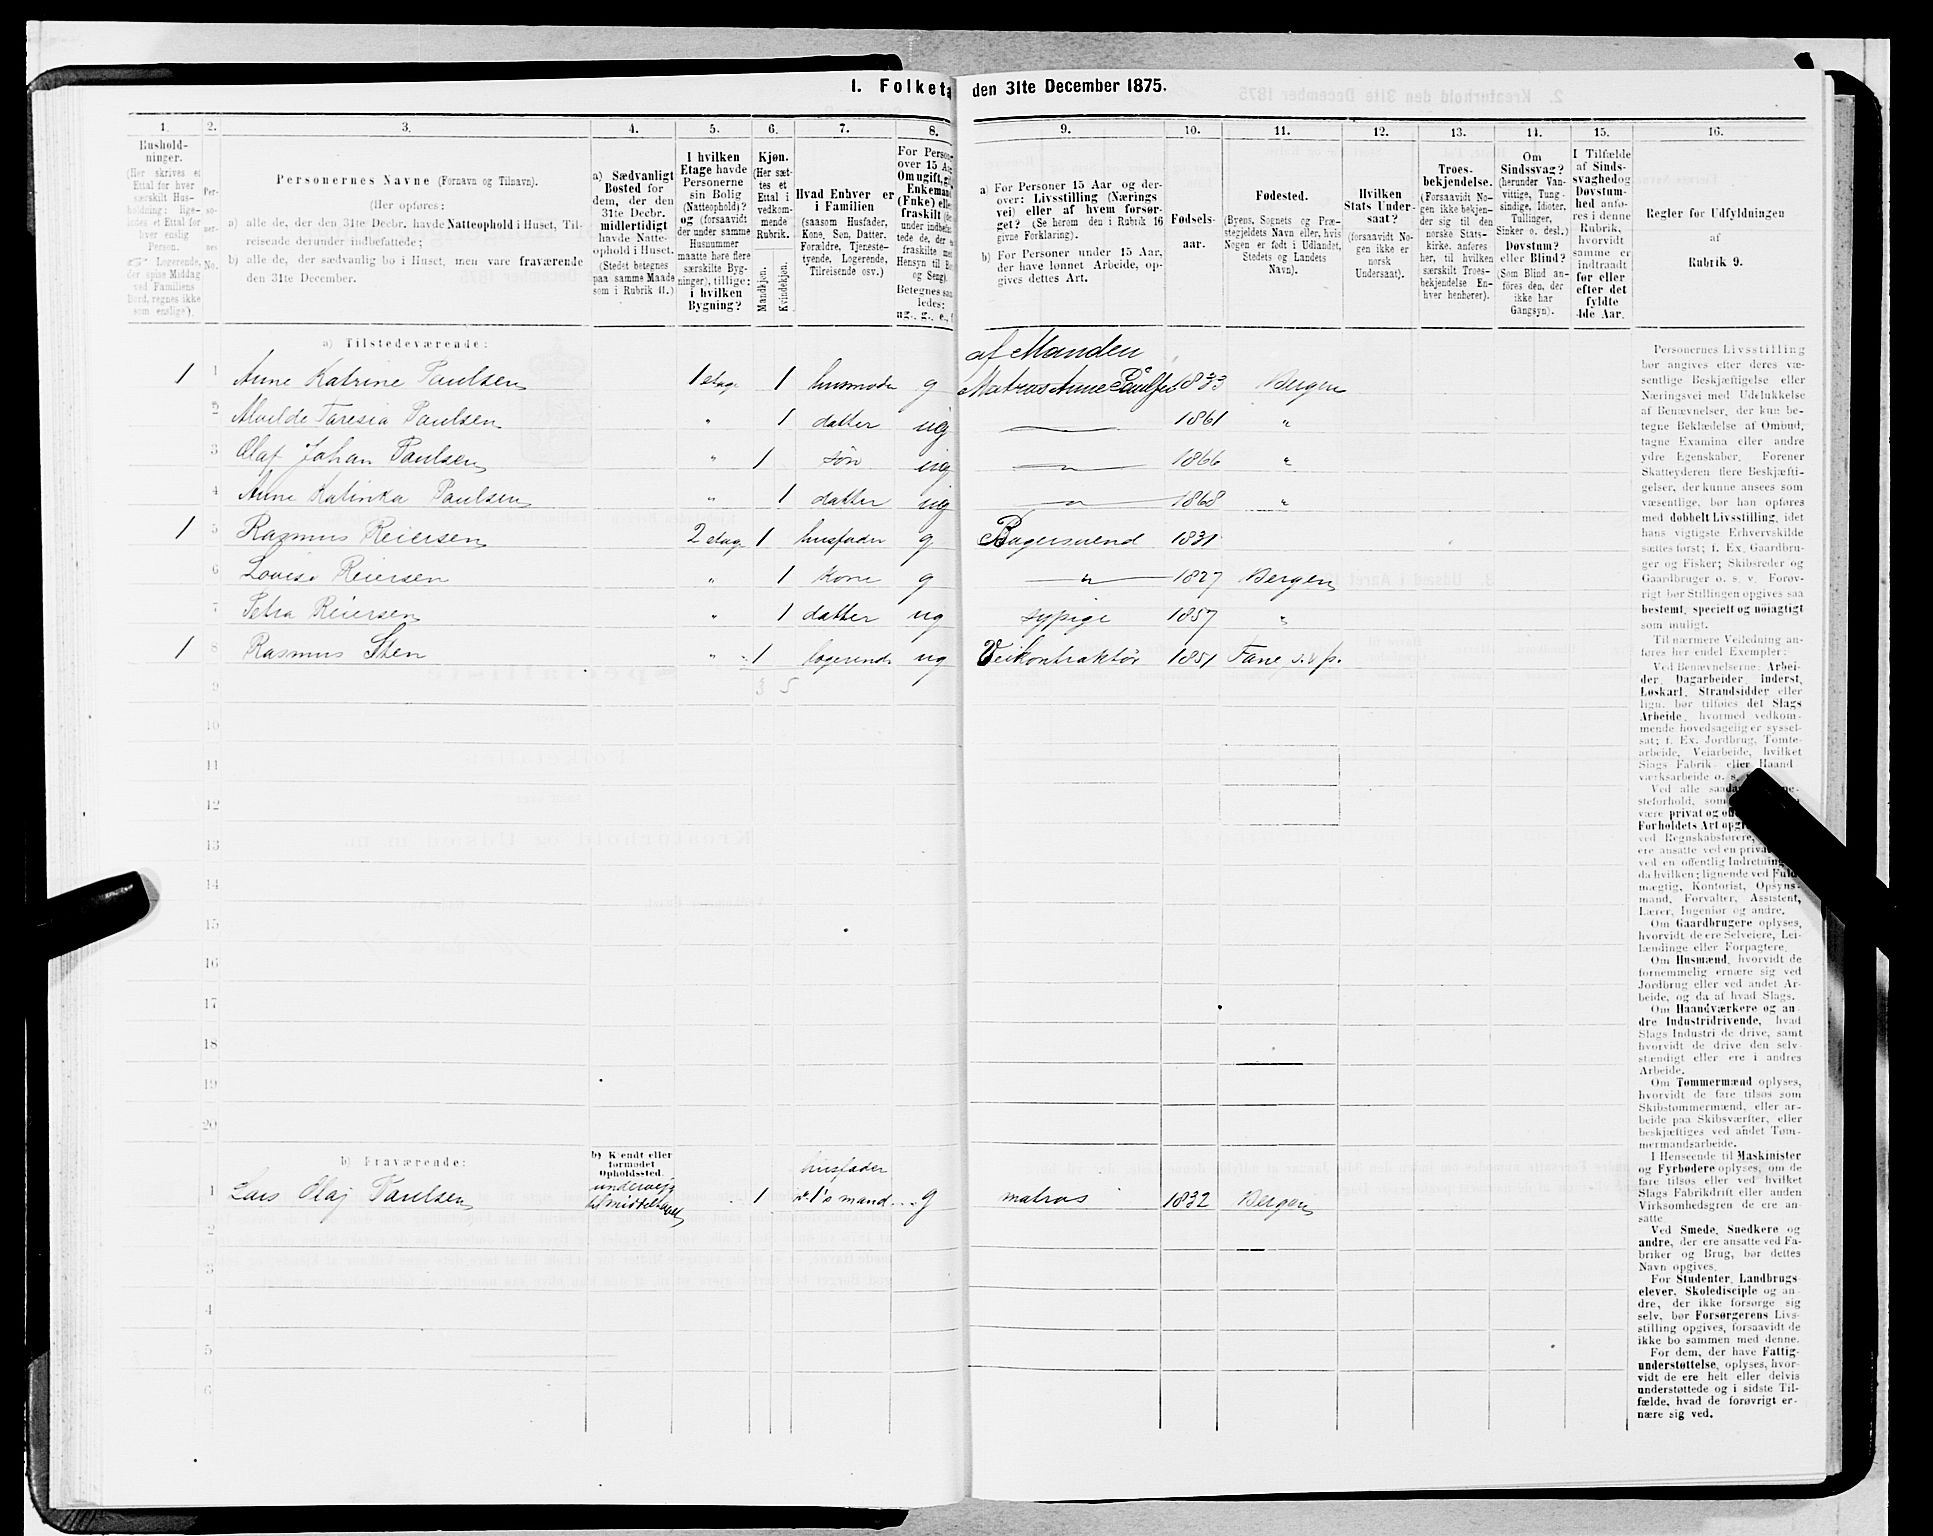 1. Folketæ den 31te December 1875.
1. 2. 3. 4. 5. 6. 7. 8. 9. 10. 11. 12. 13. 14. 15. 16.
Hushold-
ninger.
(Her skrives et
Ettal for hver
særskilt Hus-
holdning; lige-
ledes et Ettal for
hver enslig
Person.
Logerende,
der spise Middag
ved Familiens
Bord, regnes ikke
som enslige).
Per-
so-
ner-
nes
No.
Personernes Navne (Fornavn og Tilnavn).
(Her opføres:
a) alle de, der den 31te Decbr. havde Natteophold i Huset, Til-
reisende derunder indbefattede;
b) alle de, der sædvanlig bo i Huset, men vare fraværende
den 31te December.
a) Sædvanligt
Bosted for
dem, der den
31te Decbr.
midlertidigt
havde Natte-
ophold i Huset.
(Stedet betegnes
paa samme Maade
som i Rubrik 11.)
I hvilken
Etage havde
Personerne
sin Bolig
(Natteophold)?
og (forsaavidt
der under samme
Husnummer
maatte høre flere
særskilte Byg-
ninger), tillige:
i hvilken
Bygning?
Kjøn.
(Her sæt-
tes et
Ettal i
vedkom-
mende
Rubrik.
Mandkjøn.
Kvindekjøn.
Hvad Enhver er
i Familien
(saasom Husfader,
Kone, Søn, Datter,
Forældre, Tjeneste-
tyende, Logerende,
Tilreisende osv.)
For Person
over 15 Aa
Om ugift, gi
Enkemand
(Enke) elle
fraskilt (de
under indbefat
tede de, der e
fraskilte med
Hensyn til Bo
og Seng).
Betegnes saa
ledes:
ug., g., e., f
a) For Personer 15 Aar og der-
over: Livsstilling (Nærings
vei) eller af hvem forsør-
get? (Se herom den i Rubrik 16
givne Forklaring).
b) For Personer under 15 Aar,
der have lønnet Arbeide, op-
gives dettes Art.
Fødsels-
aar.
Fødested.
(Byens, Sognets og Præ-
stegjeldets Navn eller, hvis
Nogen er født i Udlandet,
Stedets og Landets
Navn).
Hvilken
Stats Under-
saat?
(forsaavidt No-
gen ikke er
norsk
Undersaat).
Troes-
bekjendelse.
(Forsaavidt No-
gen ikke bekjen-
der sig til den
norske Stats-
kirke, anføres
her, til hvilken
særskilt Troes-
bekjendelse En-
hver henhører).
Om
Sindssvag?
(herunder Van-
vittige, Tung-
sindige, Idioter,
Tullinger,
Sinker o. desl.)
Døvstum?
eller Blind?
(Som Blind an-
føres den, der
ikke har
Gangsyn).
I Tilfælde
af Sinds-
svaghed og
Døvstum-
hed anfø-
res i denne
Rubrik,
hvorvidt
samme er
indtraadt
før eller
efter det
fyldte
4de Aar.
Regler for Udfyldningen
af
Rubrik 9.
a) Tilstedeværende:
af Manden
1 1 Anne Katrine Paulsen 1 etage 1 husmoder g Matros Anne Paulsen 1833 Bergen
2 Alvilde Taresia Paulsen " 1 datter ug 1861 "
3 Olaf Johan Paulsen " 1 søn ug 1866 "
4 Anne Katinka Paulsen " 1 datter ug 1868 "
1 5 Rasmus Reiersen 2 etage 1 husfader g Bagersvend 1831
6 Lovise Reiersen " 1 kone g " 1827 Bergen
7 Petra Reiersen " 1 datter ug sypige 1857 "
1 8 Rasmus Sten " 1 logerende ug Veikontraktør 1851 Fane s. & p.
9 3 5
10
11
12
13
14
15
16
17
18
19
20
b) Fraværende:
b) Kjendt eller
formodet
Opholdssted.
1 Lars Olaj Paulsen underveis til middelhavet 1 husfader nr 1's mand g matros 1832 Bergen
2
3
4
5
6
Personernes Livsstilling
bør angives efter deres væ-
sentlige Beskjæftigelse eller
Næringsvei med Udelukkelse
af Benævnelser, der kun be-
tegne Beklædelse af Ombud,
tagne Examina eller andre
ydre Egenskaber. Forener
Skatteyderen flere Beskjæfti-
gelser, der kunne ansees som
væsentlige, bør han opføres
med dobbelt Livsstilling, idet
hans vigtigste Erhvervskilde
sættes først; f. Ex. Gaardbru-
ger og Fisker; Skibsreder og
Gaardbruger o. s. v. Forøv-
rigt bør Stillingen opgives saa
bestemt, specielt og nøiagtigt
som muligt.
Til nærmere Veiledning an-
føres her endel Exempler:
Ved Benævnelserne: Arbei-
der, Dagarbeider, Inderst,
Løskarl, Strandsidder eller
lign. bør tilføies det Slags
Arbeide, hvormed vedkom-
mende hovedsagelig er syssel-
sat; f. Ex. Jordbrug, Tomte-
arbeide, Veiarbeide, hvilket
Slags Fabrik- eller Haand-
værksarbeide o. s.
Ved alle saada
steforhold, som
være privat og of
Forholdets Art opg
ved Regnskabsførere,
ere ansatte ved en priva
ved en offentlig Indretning
da hvilken; lignende ved Fuld-
mægtig, Kontorist, Opsyns-
mand, Forvalter, Assistent,
Lærer, Ingeniør og andre.
Om Gaardbrugere oplyses,
hvorvidt de ere Selveiere, Lei-
lændinge eller Forpagtere.
Om Husmænd, hvorvidt de
fornemmelig ernære sig ved
Jordbrug eller ved andet Ar-
beide, og da af hvad Slags.
Om Haandværkere og an-
dre Industridrivende, hvad
Slags Industri de drive, samt
hvorvidt de drive den selv-
stændigt eller ere i andres
Arbeide.
Om Tømmermænd oplyses,
hvorvidt de fare tilsøs som
Skibstømmermænd, eller ar-
beide paa Skibsværfter, eller
beskjæftiges ved andet Tøm-
mermandsarbeide.
I Henseende til Maskinister
og Fyrbødere oplyses, om de
fare tilsøs eller ved hvilket
Slags Fabrikdrift eller anden
Virksomhedsgren de ere an-
satte
Ved Smede, Snedkere og
andre, der ere ansatte ved Fa-
briker og Brug, bør dettes
Navn opgives.
For Studenter, Landbrugs-
elever, Skoledisciple og an-
dre, der ikke forsørge sig
selv, bør Forsørgerens Livs-
stilling opgives, forsaavidt de
ikke bo sammen med denne.
For dem, der have Fattig-
understøttelse, oplyses, hvor-
vidt de ere helt eller delvis
understøttede og i sidste Til-
fælde, hvad de forøvrigt er-
nære sig ved.